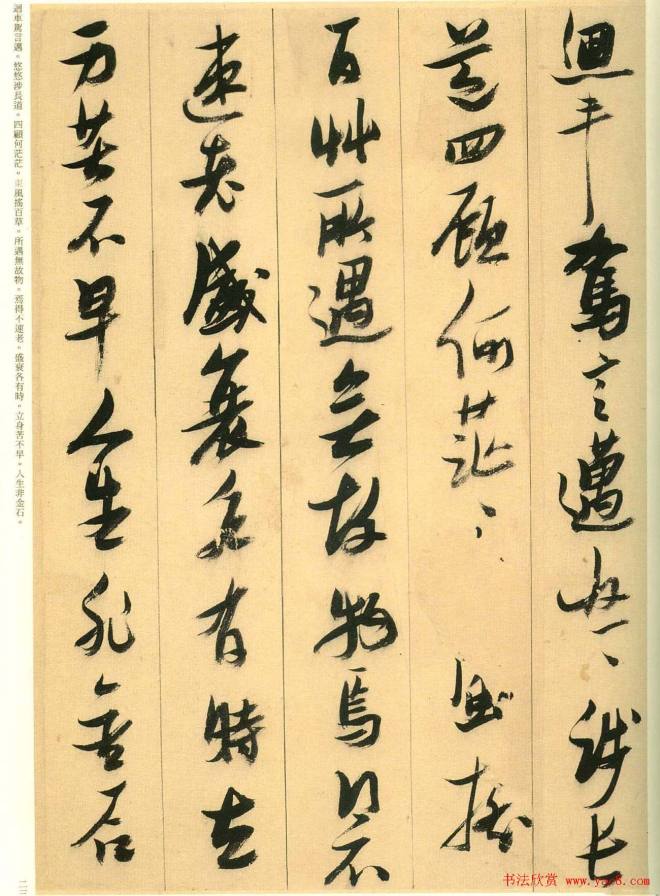 迴車駕言邁悠〻涉長
道四顧何茫〻風搖
百草所遇無故物焉得不
速老盛衰各有時立
身苦不早人生非金石
迴車駕言邁。悠悠涉長道。四顧何茫茫。東風搖百草。所遇無故物。焉得不速老。盛衰各有時。立身苦不早。人生非金石。
书法欣赏 www.yac8.com